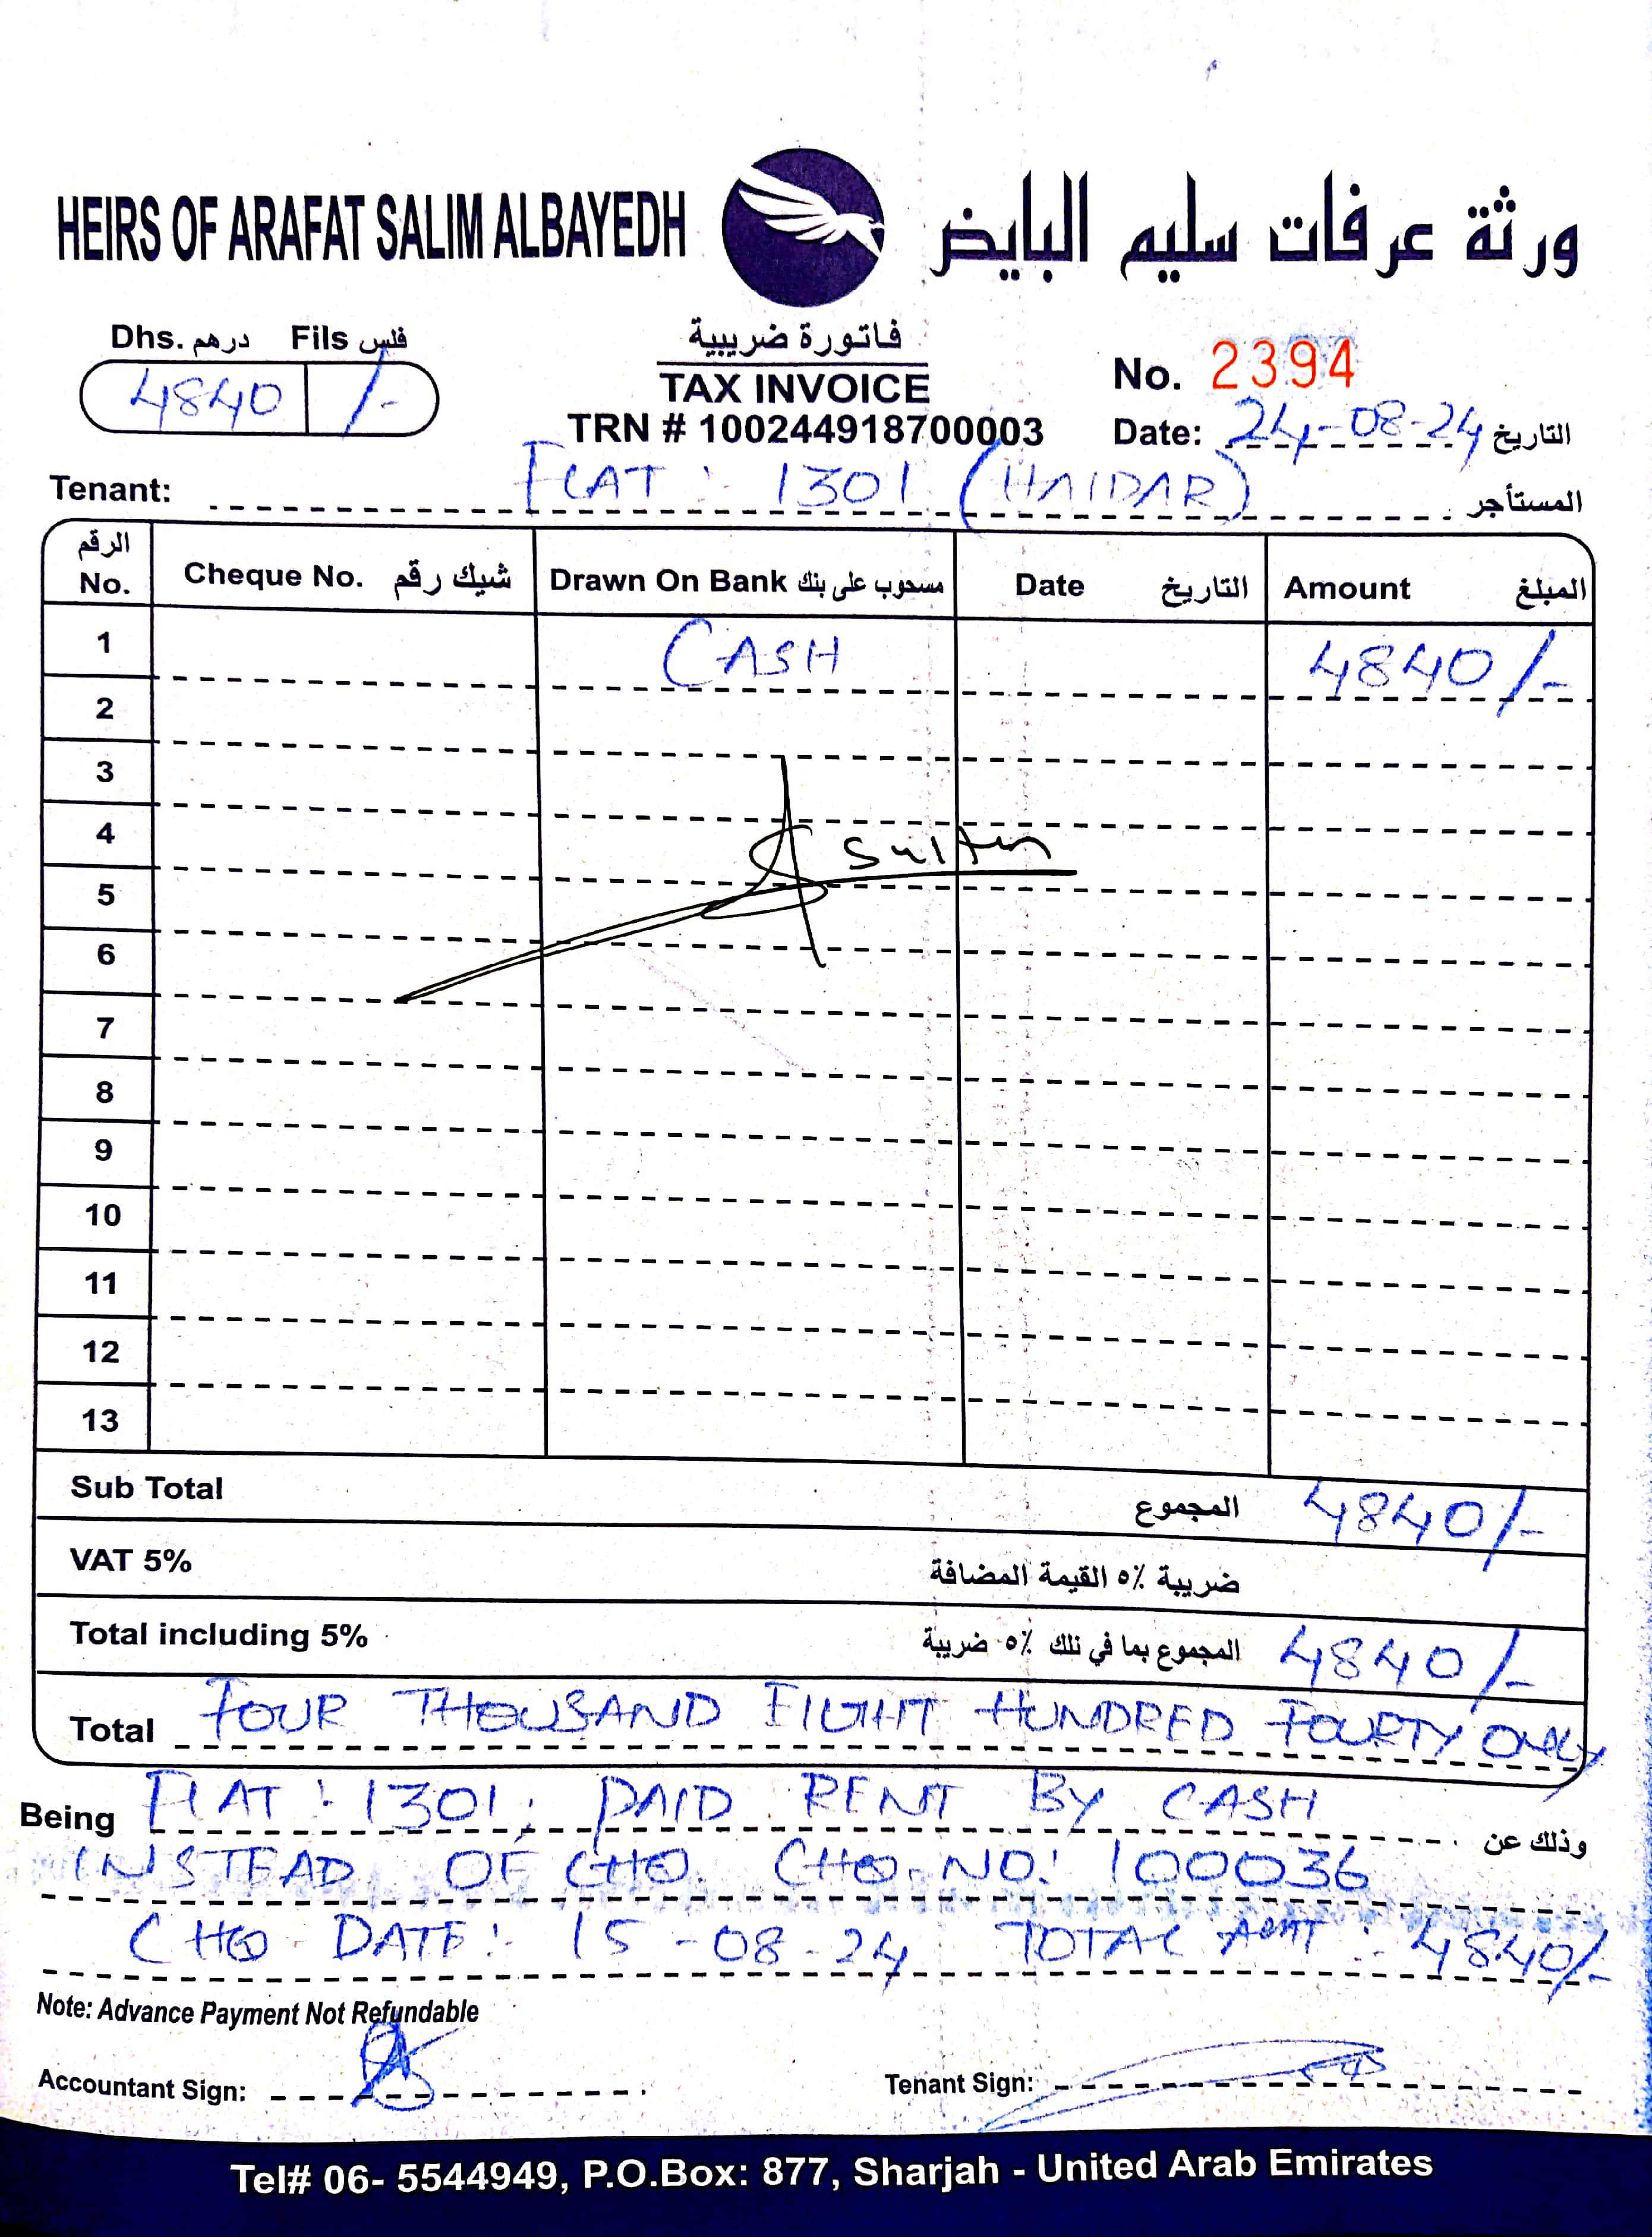 HEIRS OF ARAFAT SALIM ALBAYEDH ورثة عرفات سليم البايض
Dhs. درهم Fils فلس
4840 /-
فاتورة ضريبية
TAX INVOICE
TRN # 100244918700003
No. 2394
Date: 24-08-24 التاريخ
Tenant: FLAT : 1301 (HAIDAR) المستأجر
الرقم No. Cheque No. شيك رقم Drawn On Bank مسحوب على بنك Date التاريخ Amount المبلغ
1 CASH 4840/-
2
3
4 Sultan
5
6
7
8
9
10
11
12
13
Sub Total المجموع 4840/-
VAT 5% ضريبة ٥٪ القيمة المضافة
Total including 5% المجموع بما في ذلك ٥٪ ضريبة 4840/-
Total FOUR THOUSAND EIGHT HUNDRED FOURTY ONLY
Being FLAT : 1301, PAID RENT BY CASH وذلك عن
INSTEAD OF CHQ. CHQ. NO: 100036
CHQ DATE: 15-08-24 TOTAL AMT : 4840/-
Note: Advance Payment Not Refundable
Accountant Sign: Tenant Sign:
Tel# 06- 5544949, P.O.Box: 877, Sharjah - United Arab Emirates